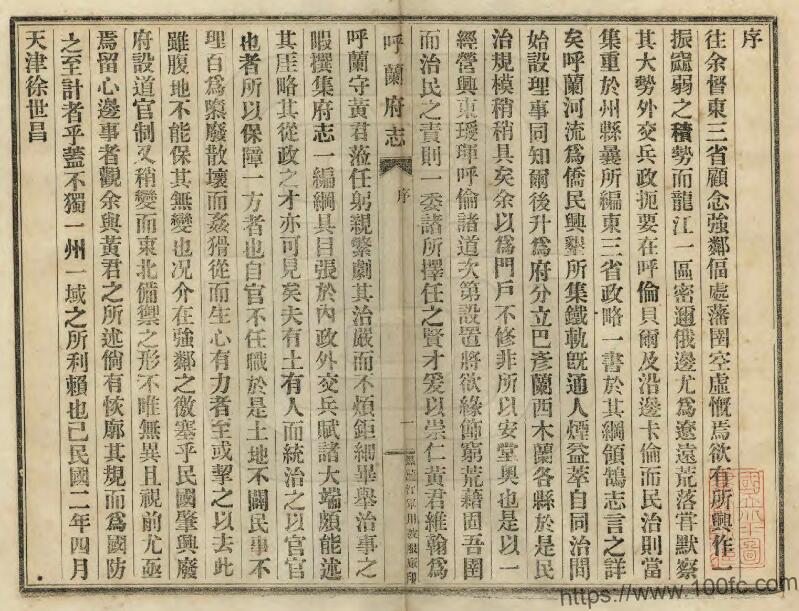 序
往余督東三省顧念強鄰偪處藩圉空虛慨焉欲有所興作一
振寙弱之積勢而龍江一區密邇俄邊尤爲遼遠荒落嘗默察
其大勢外交兵政扼要在呼倫貝爾及沿邊卡倫而民治則當
集重於州縣曩所編東三省政略一書於其綱領鵠志言之詳
矣呼蘭河流爲僑民興墾所集鐵軌旣通人煙益萃自同治間
始設理事同知爾後升爲府分立巴彥蘭西木蘭各縣於是民
治規模稍稍具矣余以爲門戶不修非所以安堂奧也是以一
經營興東璦琿呼倫諸道次第設置將欲緣飾窮荒藉固吾圉
而治民之責則一委諸所擇任之賢才爰以崇仁黃君維翰爲
呼蘭府志
序
一
呼蘭守黃君蒞任躬親繁劇其治嚴而不煩鉅細畢舉治事之
暇撰集府志一編綱具目張於內政外交兵賦諸大端頗能述
其厓略其從政之才亦可見矣夫有土有人而統治之以官官
也者所以保障一方者也自官不任職於是土地不闢民事不
理百爲隳廢散壞而姦猾從而生心有力者至或挈之以去此
雖腹地不能保其無變也况介在強鄰之徼塞乎民國肇興廢
府設道官制又稍變而東北備禦之形不唯無異且視前尤亟
焉留心邊事者觀余與黃君之所述倘有恢廓其規而爲國防
之至計者乎蓋不獨一州一域之所利賴也已民國二年四月
天津徐世昌
https://www.100fc.com